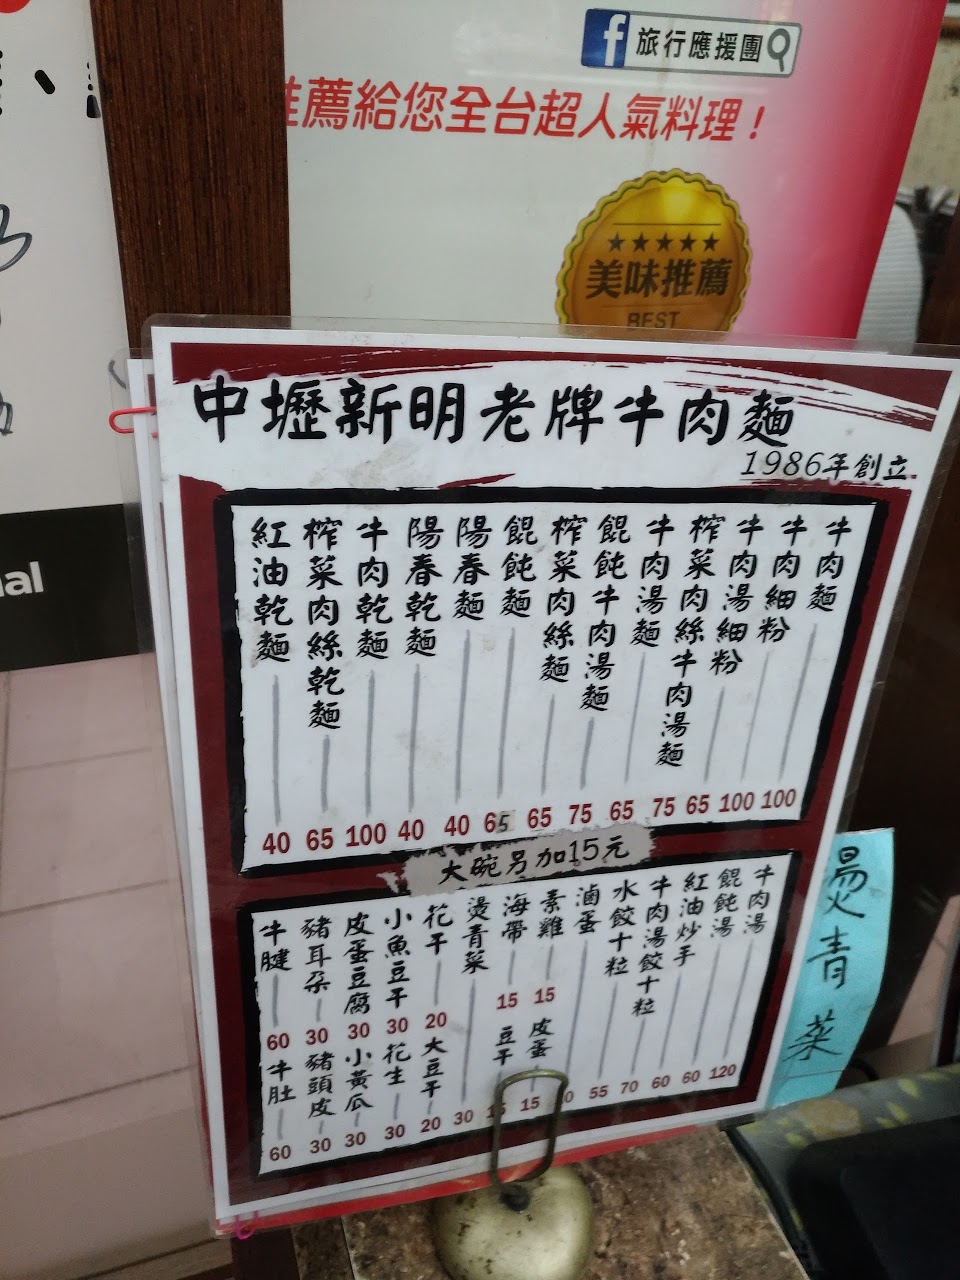 旅行應援團
推薦給您全台超人氣料理！
★★★★★
美味推薦
BEST
中壢新明老牌牛肉麵
1986年創立
牛肉麵 100
牛肉細粉 100
牛肉湯細粉 65
榨菜肉絲牛肉湯麵 75
牛肉湯麵 65
餛飩牛肉湯麵 75
榨菜肉絲麵 65
餛飩麵 65
陽春麵 40
陽春乾麵 40
牛肉乾麵 100
榨菜肉絲乾麵 65
紅油乾麵 40
大碗另加15元
牛肉湯 120
餛飩湯 60
紅油炒手 60
牛肉湯餃十粒 70
水餃十粒 55
滷蛋
素雞 15
皮蛋 15
海帶 15
豆干 15
燙青菜 30
花干 20
大豆干 20
小魚豆干 30
花生 30
皮蛋豆腐 30
小黃瓜 30
豬耳朵 30
豬頭皮 30
牛腱 60
牛肚 60
燙青菜